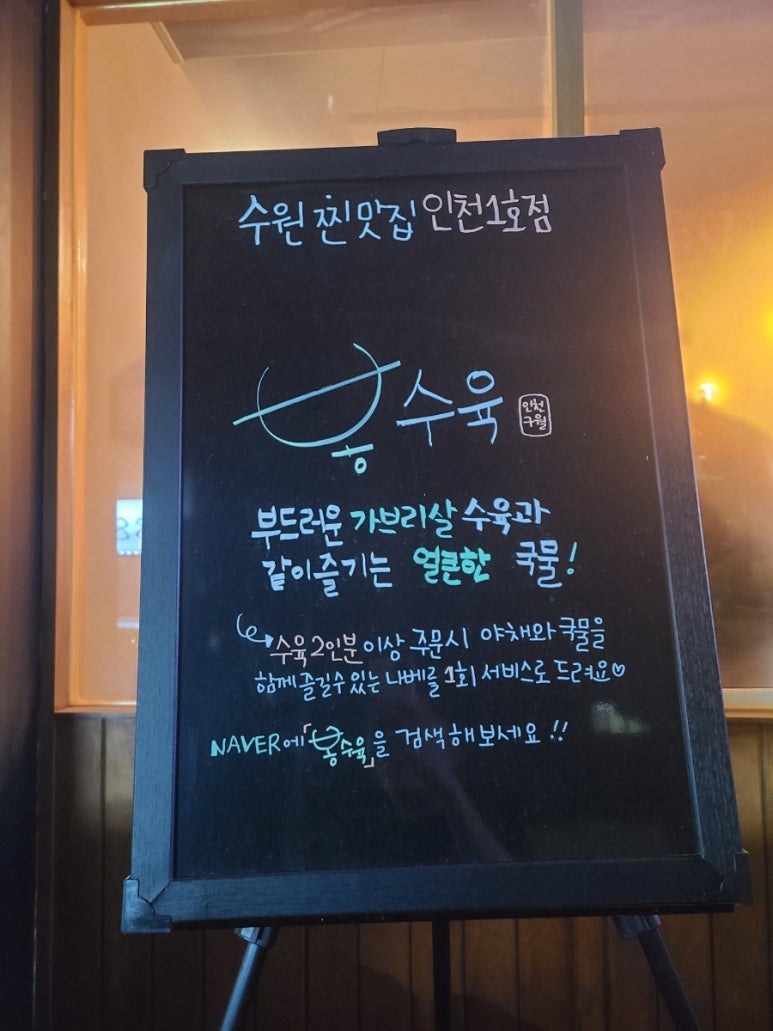 수원 찐맛집 인천1호점
봉수육
인천
구월
부드러운 가브리살 수육과
같이즐기는 얼큰한 국물!
수육2인분이상 주문시 야채와 국물을
함께 즐길수있는 나베를 1회 서비스로 드려요♡
NAVER에「봉수육」을 검색해보세요!!